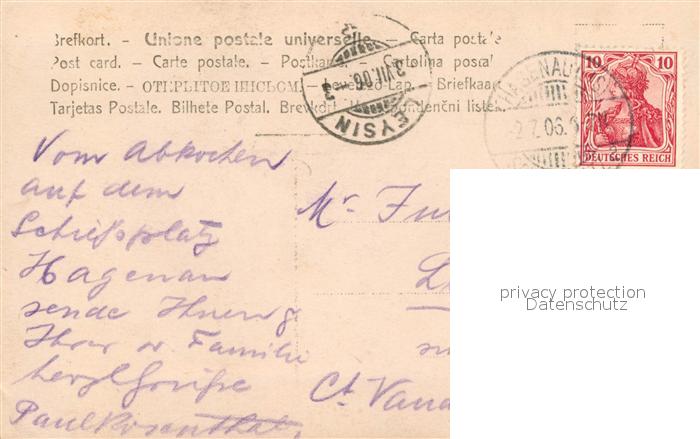 Brefkort. - Unione postale universelle - Carta postale
Post card. - Carte postale. - Postkarte - Cartolina postal
Dopisnice. - ОТКРЫТОЕ ПИСЬМО. - Levelező-Lap. - Briefkaart
Tarjetas Postale. Bilhete Postal. Brevkort. Korespondenční listek.
EYSIN
3.VII.06
HAGENAU
2.7.06.
10 10
DEUTSCHES REICH
Vom Abkochen
auf dem
Schießplatz
Hagenau
sende Ihnen
Ihrer Familie
herzl. Grüße
Paul Rosenthal
Mr
Ct. Vaud
privacy protection
Datenschutz